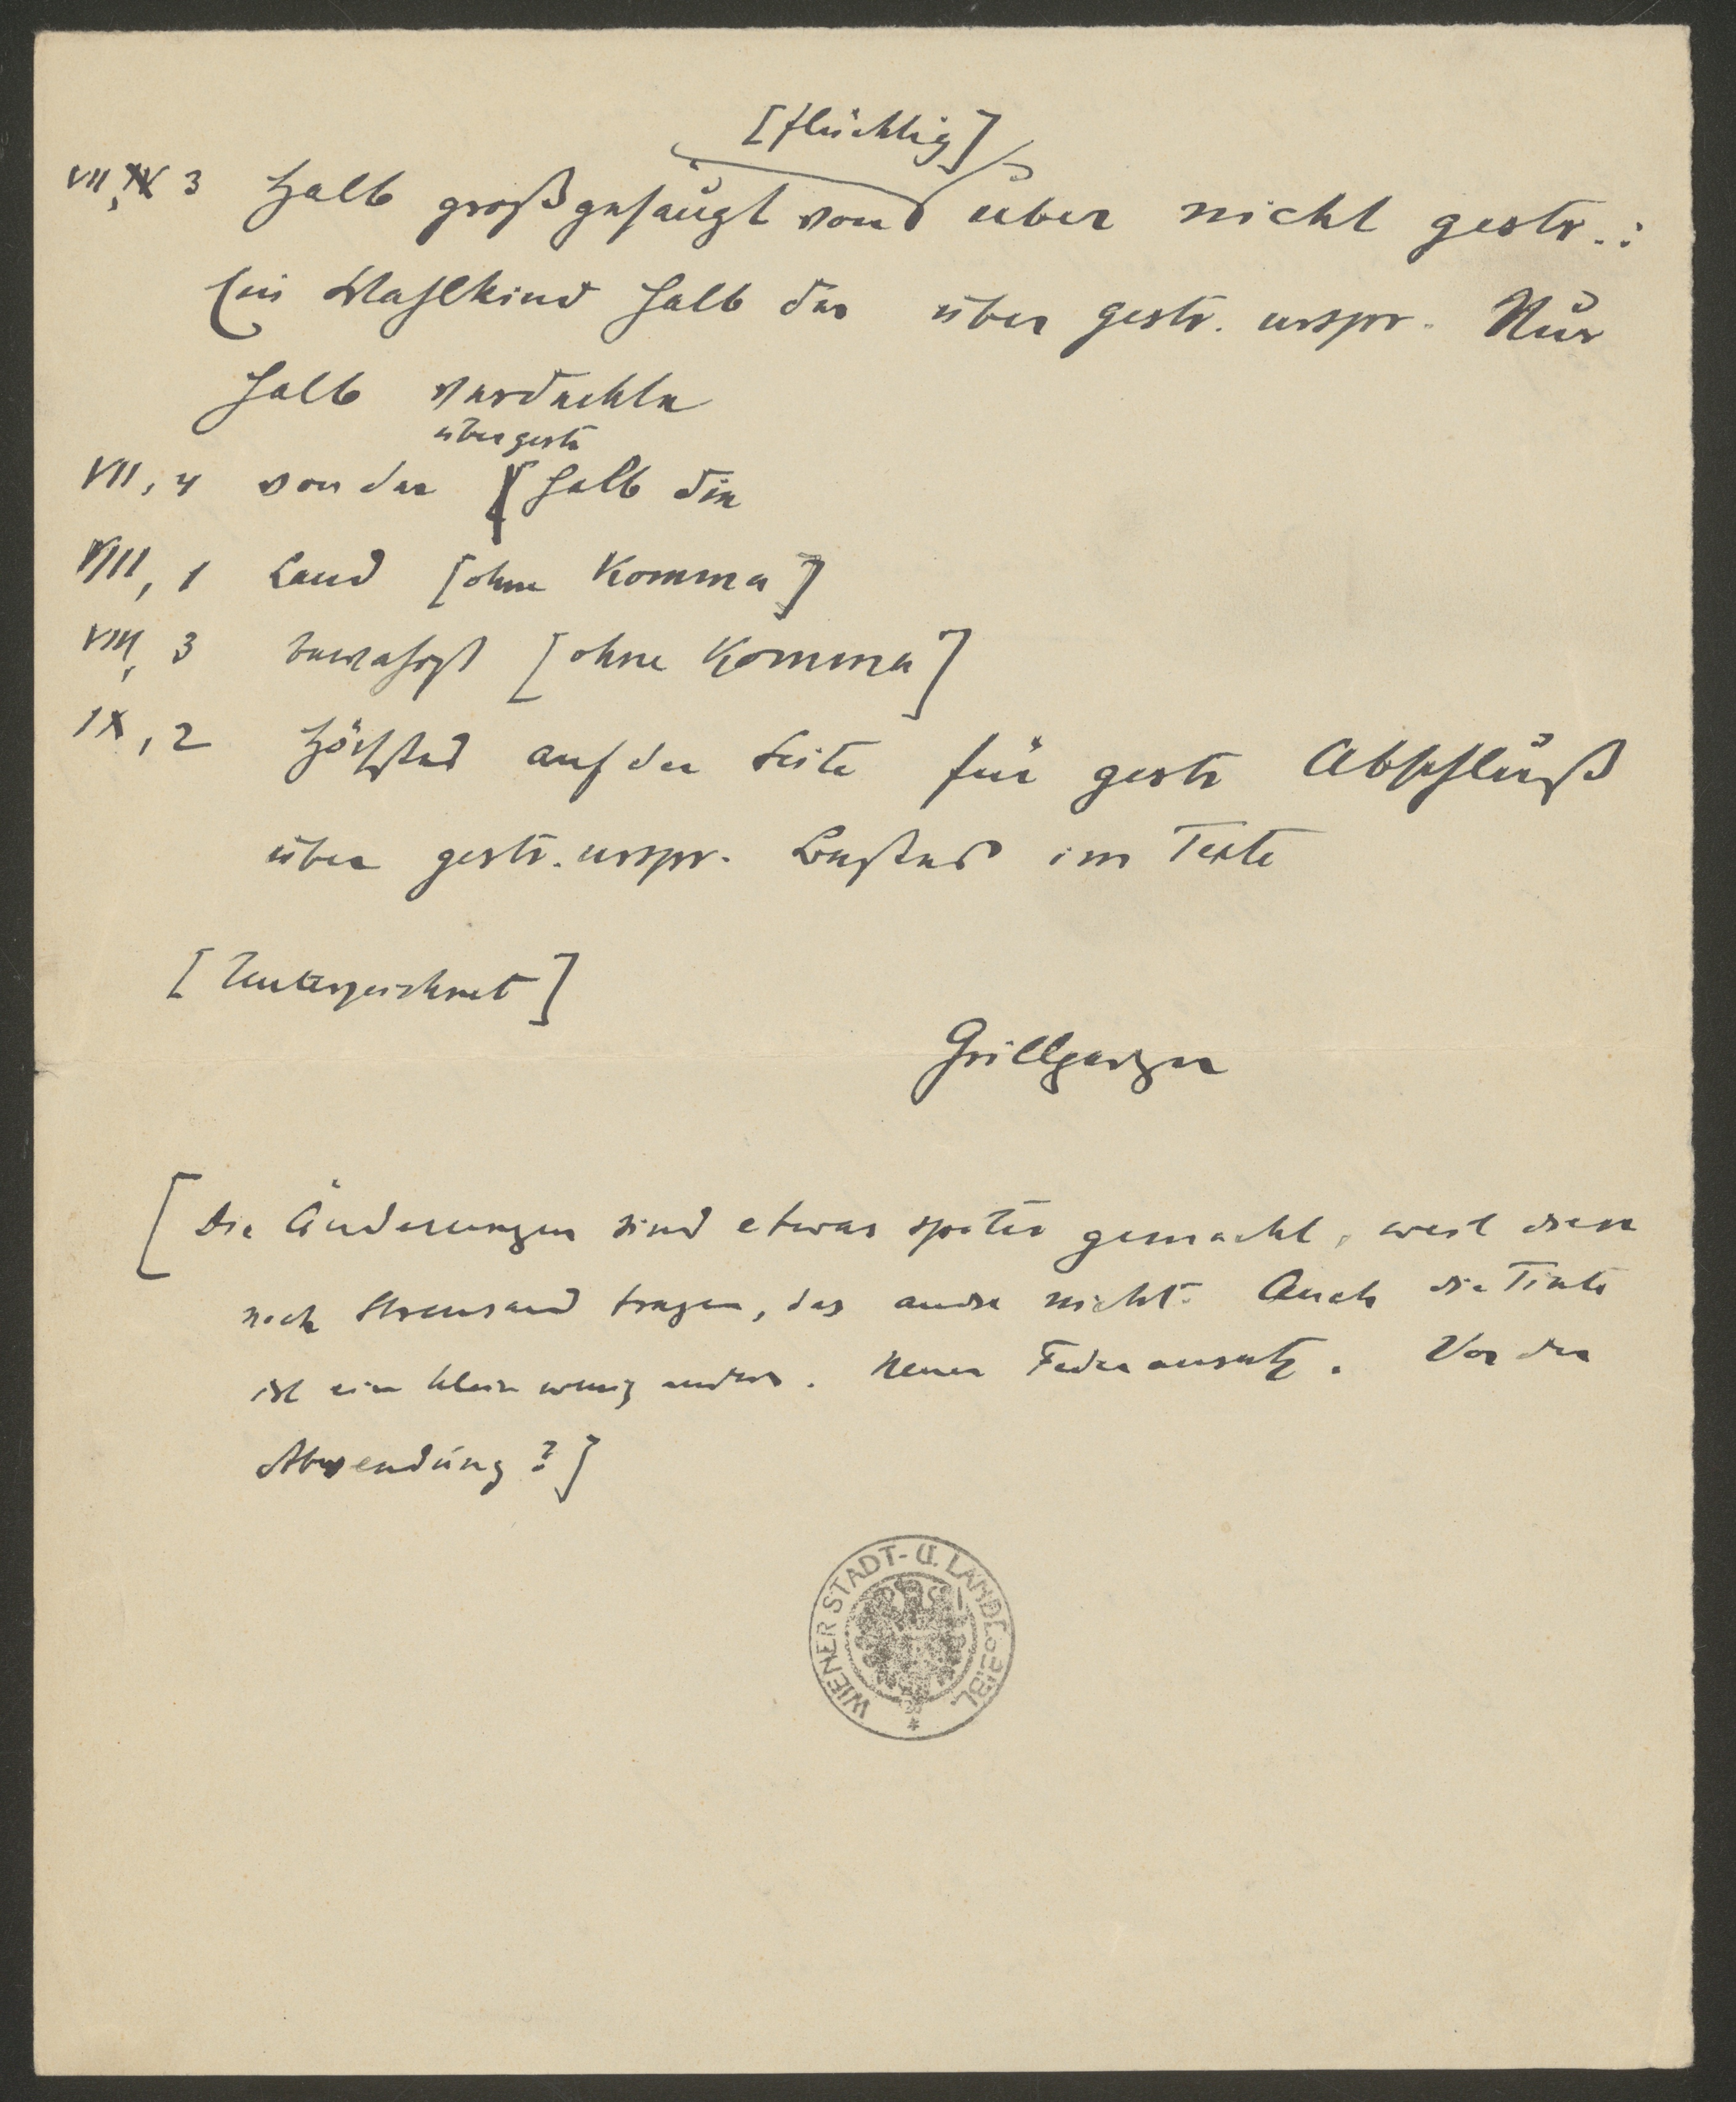 [flüchtig]
VII, 3 Halb großgesäugt von über nicht gestr.:
Ein Wahlkind halb der über gestr. urspr. Nur
halb verdachte
über gestr
VII, 4 von der halb die
VIII, 1 Land [ohne Komma]
VIII, 3 bewahrst [ohne Komma]
IX, 2 Höchstes auf der Seite für gestr Abschluß
über gestr. urspr. Bestes im Texte
[Unterzeichnet]
Grillparzer
[Die Änderungen sind etwas später gemacht, weil diese
noch Streusand tragen, das andre nicht. Auch die Tinte
ist ein klein wenig anders. Neuer Federansatz. Vor der
Absendung?]
WIENER STADT- U. LANDESBIBL.